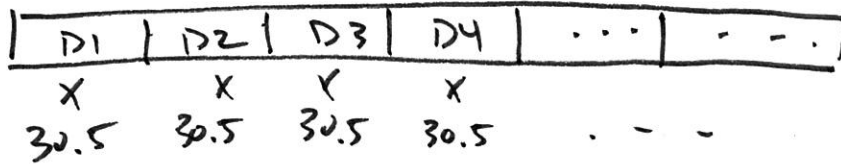 D1 D2 D3 D4 ... - - .
X X X X
30.5 30.5 30.5 30.5 . - -